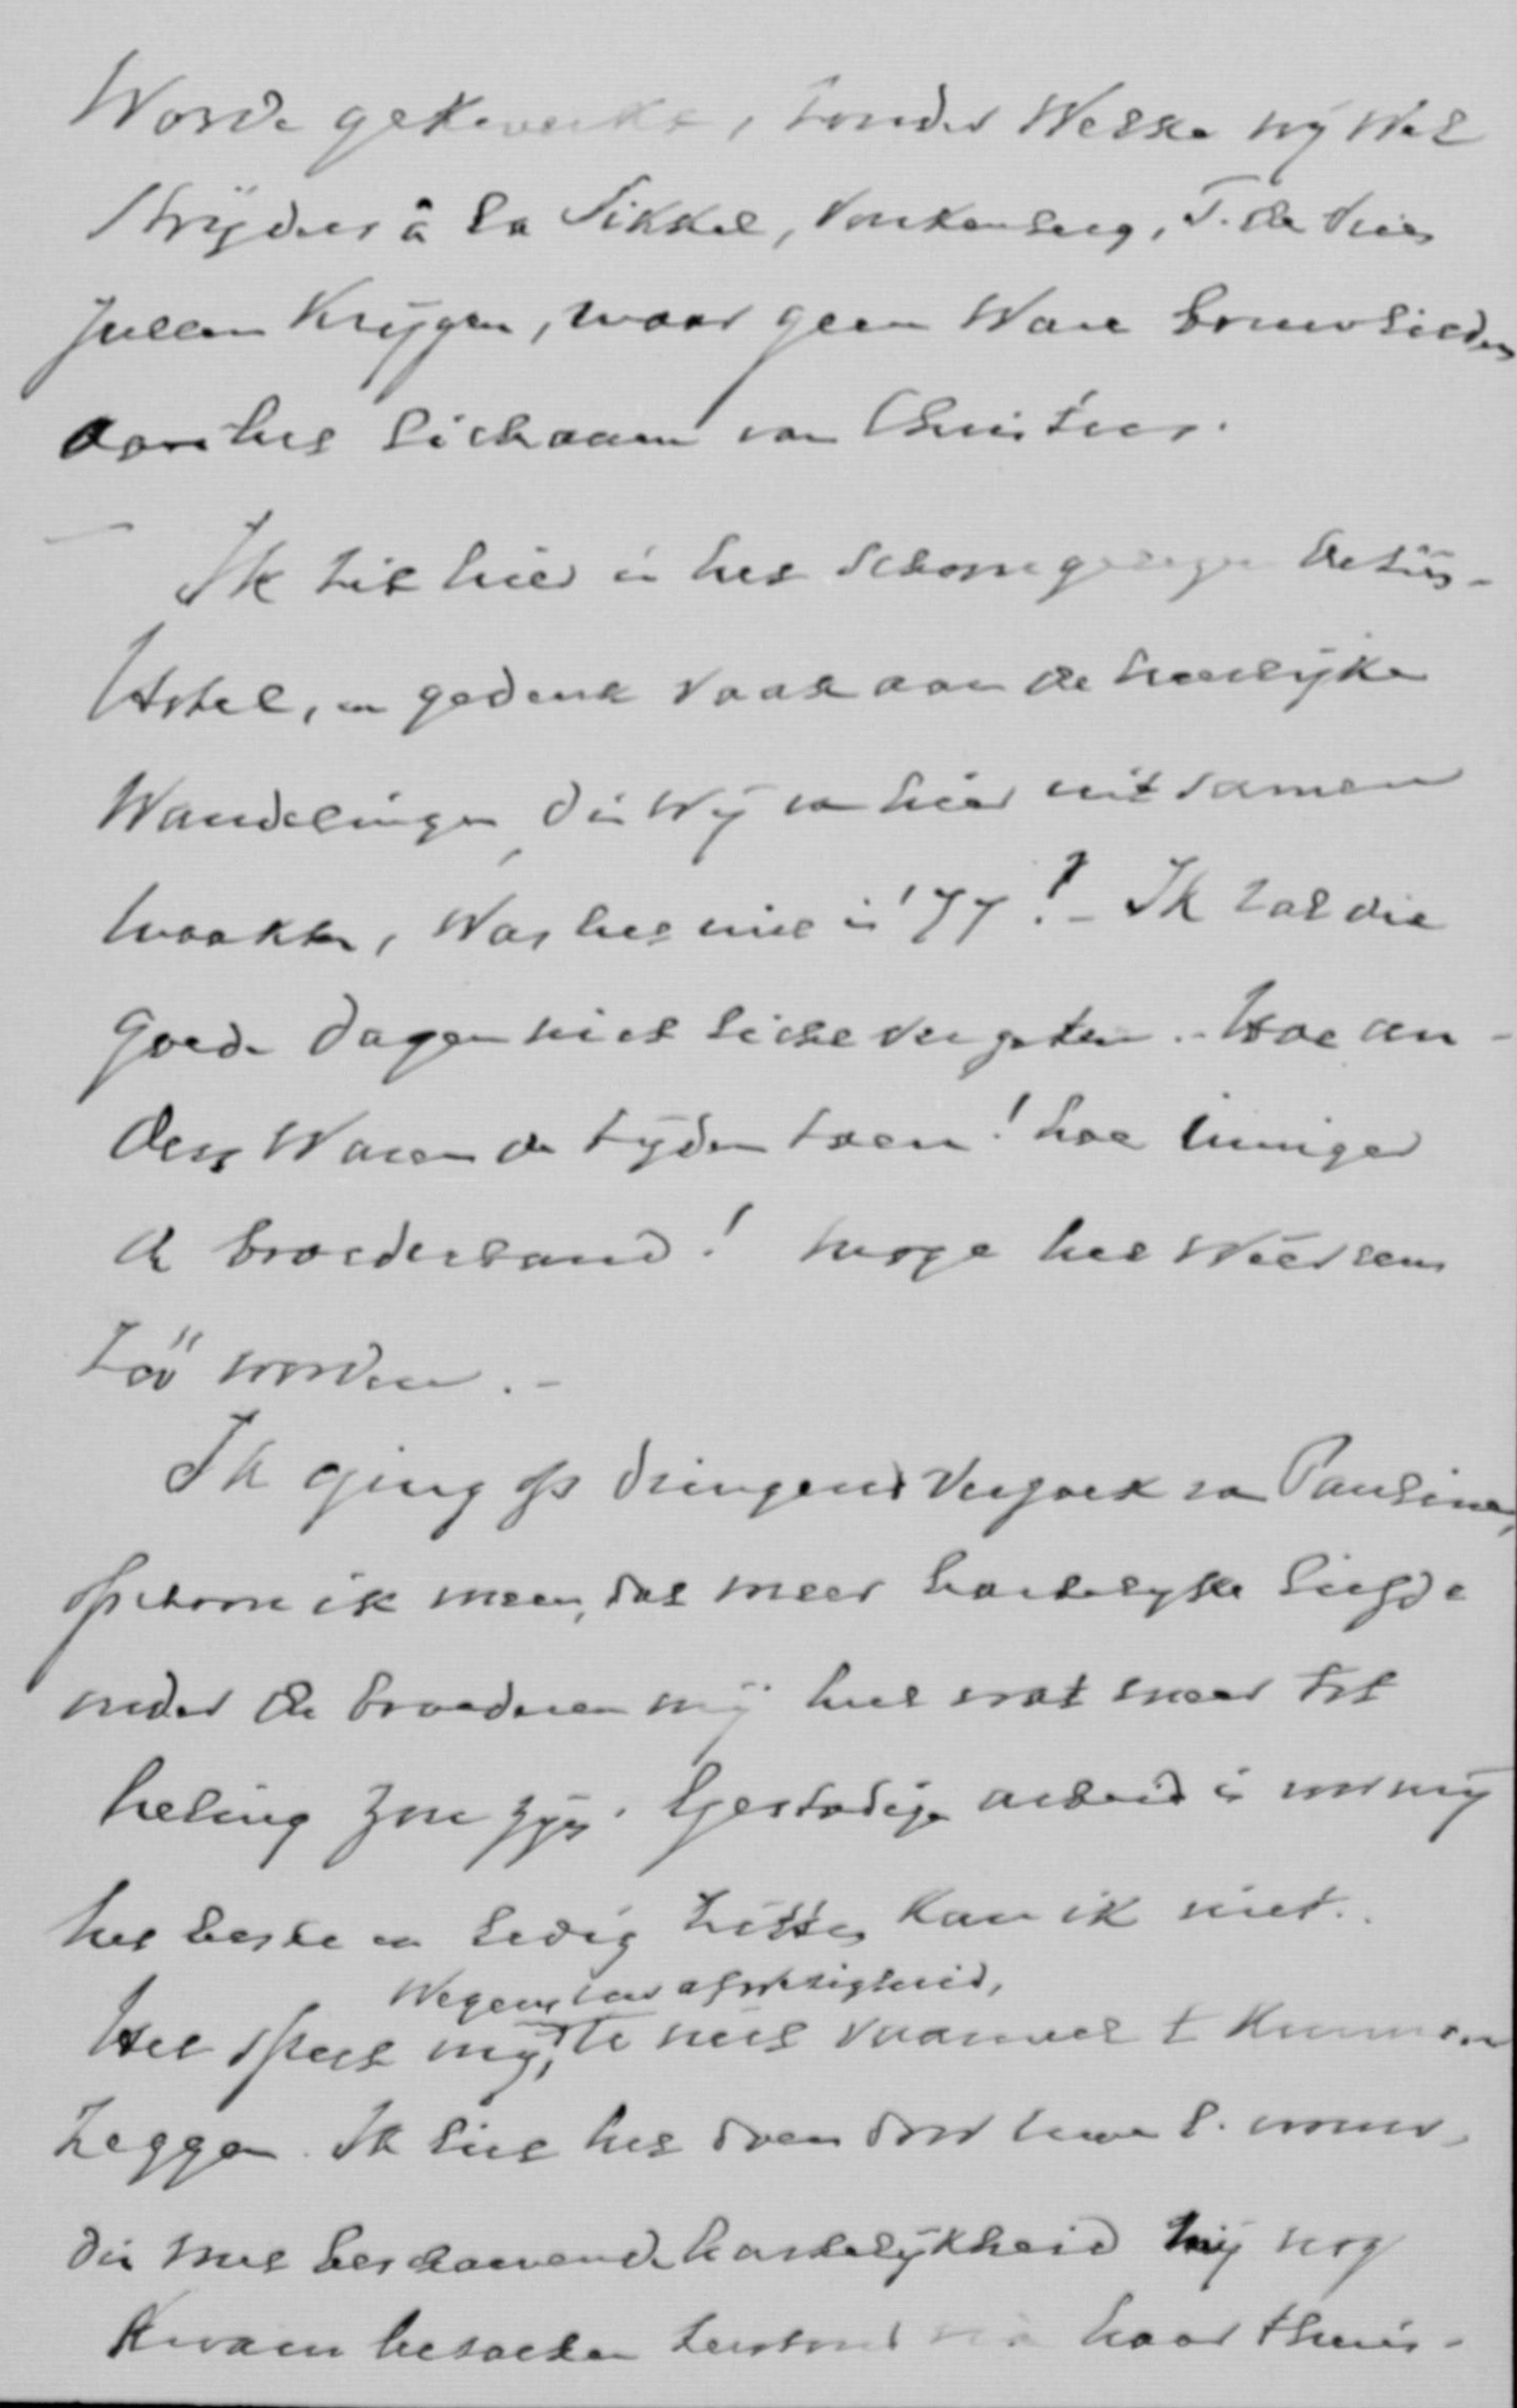 Worde gekweekt, zonder Welke wij Wel
Strijders à la Sikkel, Vonkenberg, T. de Vries
zullen Krijgen, maar geen Ware bouwlieden
aan het lichaam van Christus.
Ik zit hier in het schoon gelegen
Hotel, en gedenk Vaak aan de heerlijke
Wandelingen die Wij van hier uit samen
maakten, Was het niet in '77? - Ik zal die
goede dagen niet licht vergeten. - Hoe an-
ders Waren de tijden toen! hoe inniger
de broederband! moge het Weer eens
zóó worden. -
Ik ging op dringend Verzoek van Pauline,
ofschoon ik meen, dat meer hartelyke liefde
onder de broederen mij heel wat meer tot
heling zou zijn. Gestadige arbeid is voor mij
het beste en ledig zitten kan ik niet.
Wegens Uw afwezigheid,
Het speet mij, U niet vaarwel te Kunnen
zeggen. Ik liet het doen door Uwe l. vrouw,
die met beschamende hartelijkheid mij nog
Kwam bezoeken terstond na haar thuis-